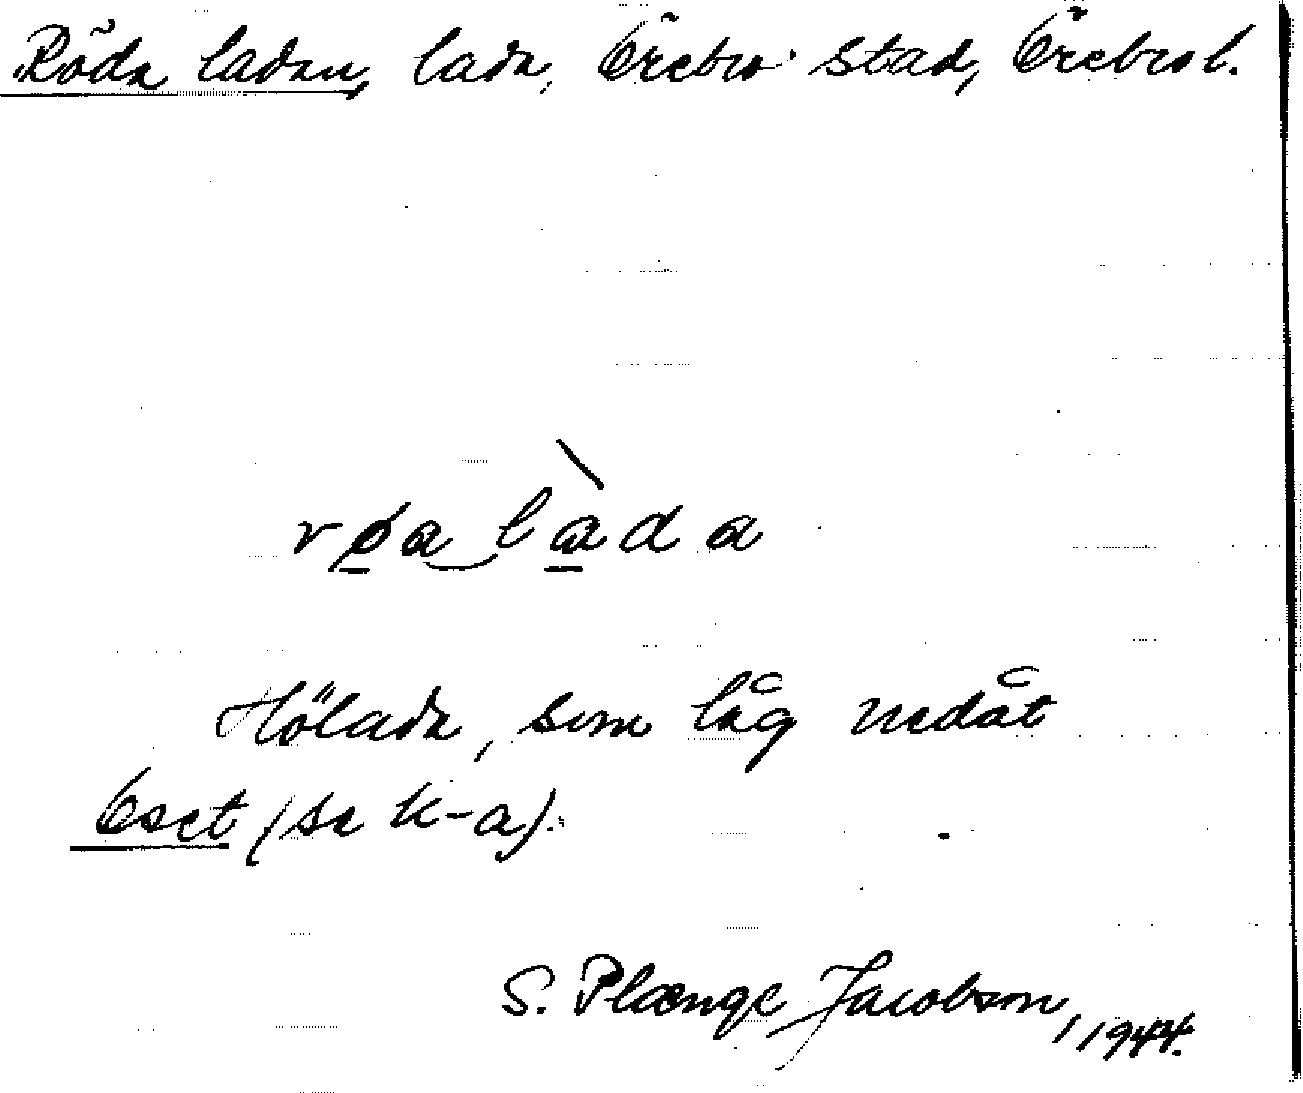 Röda ladan, lada, Örebro stad, Örebro l.
røa làda
Hölada, som låg nedåt
Öset (se k-a).
S. Plænge Jacobson, 1944.